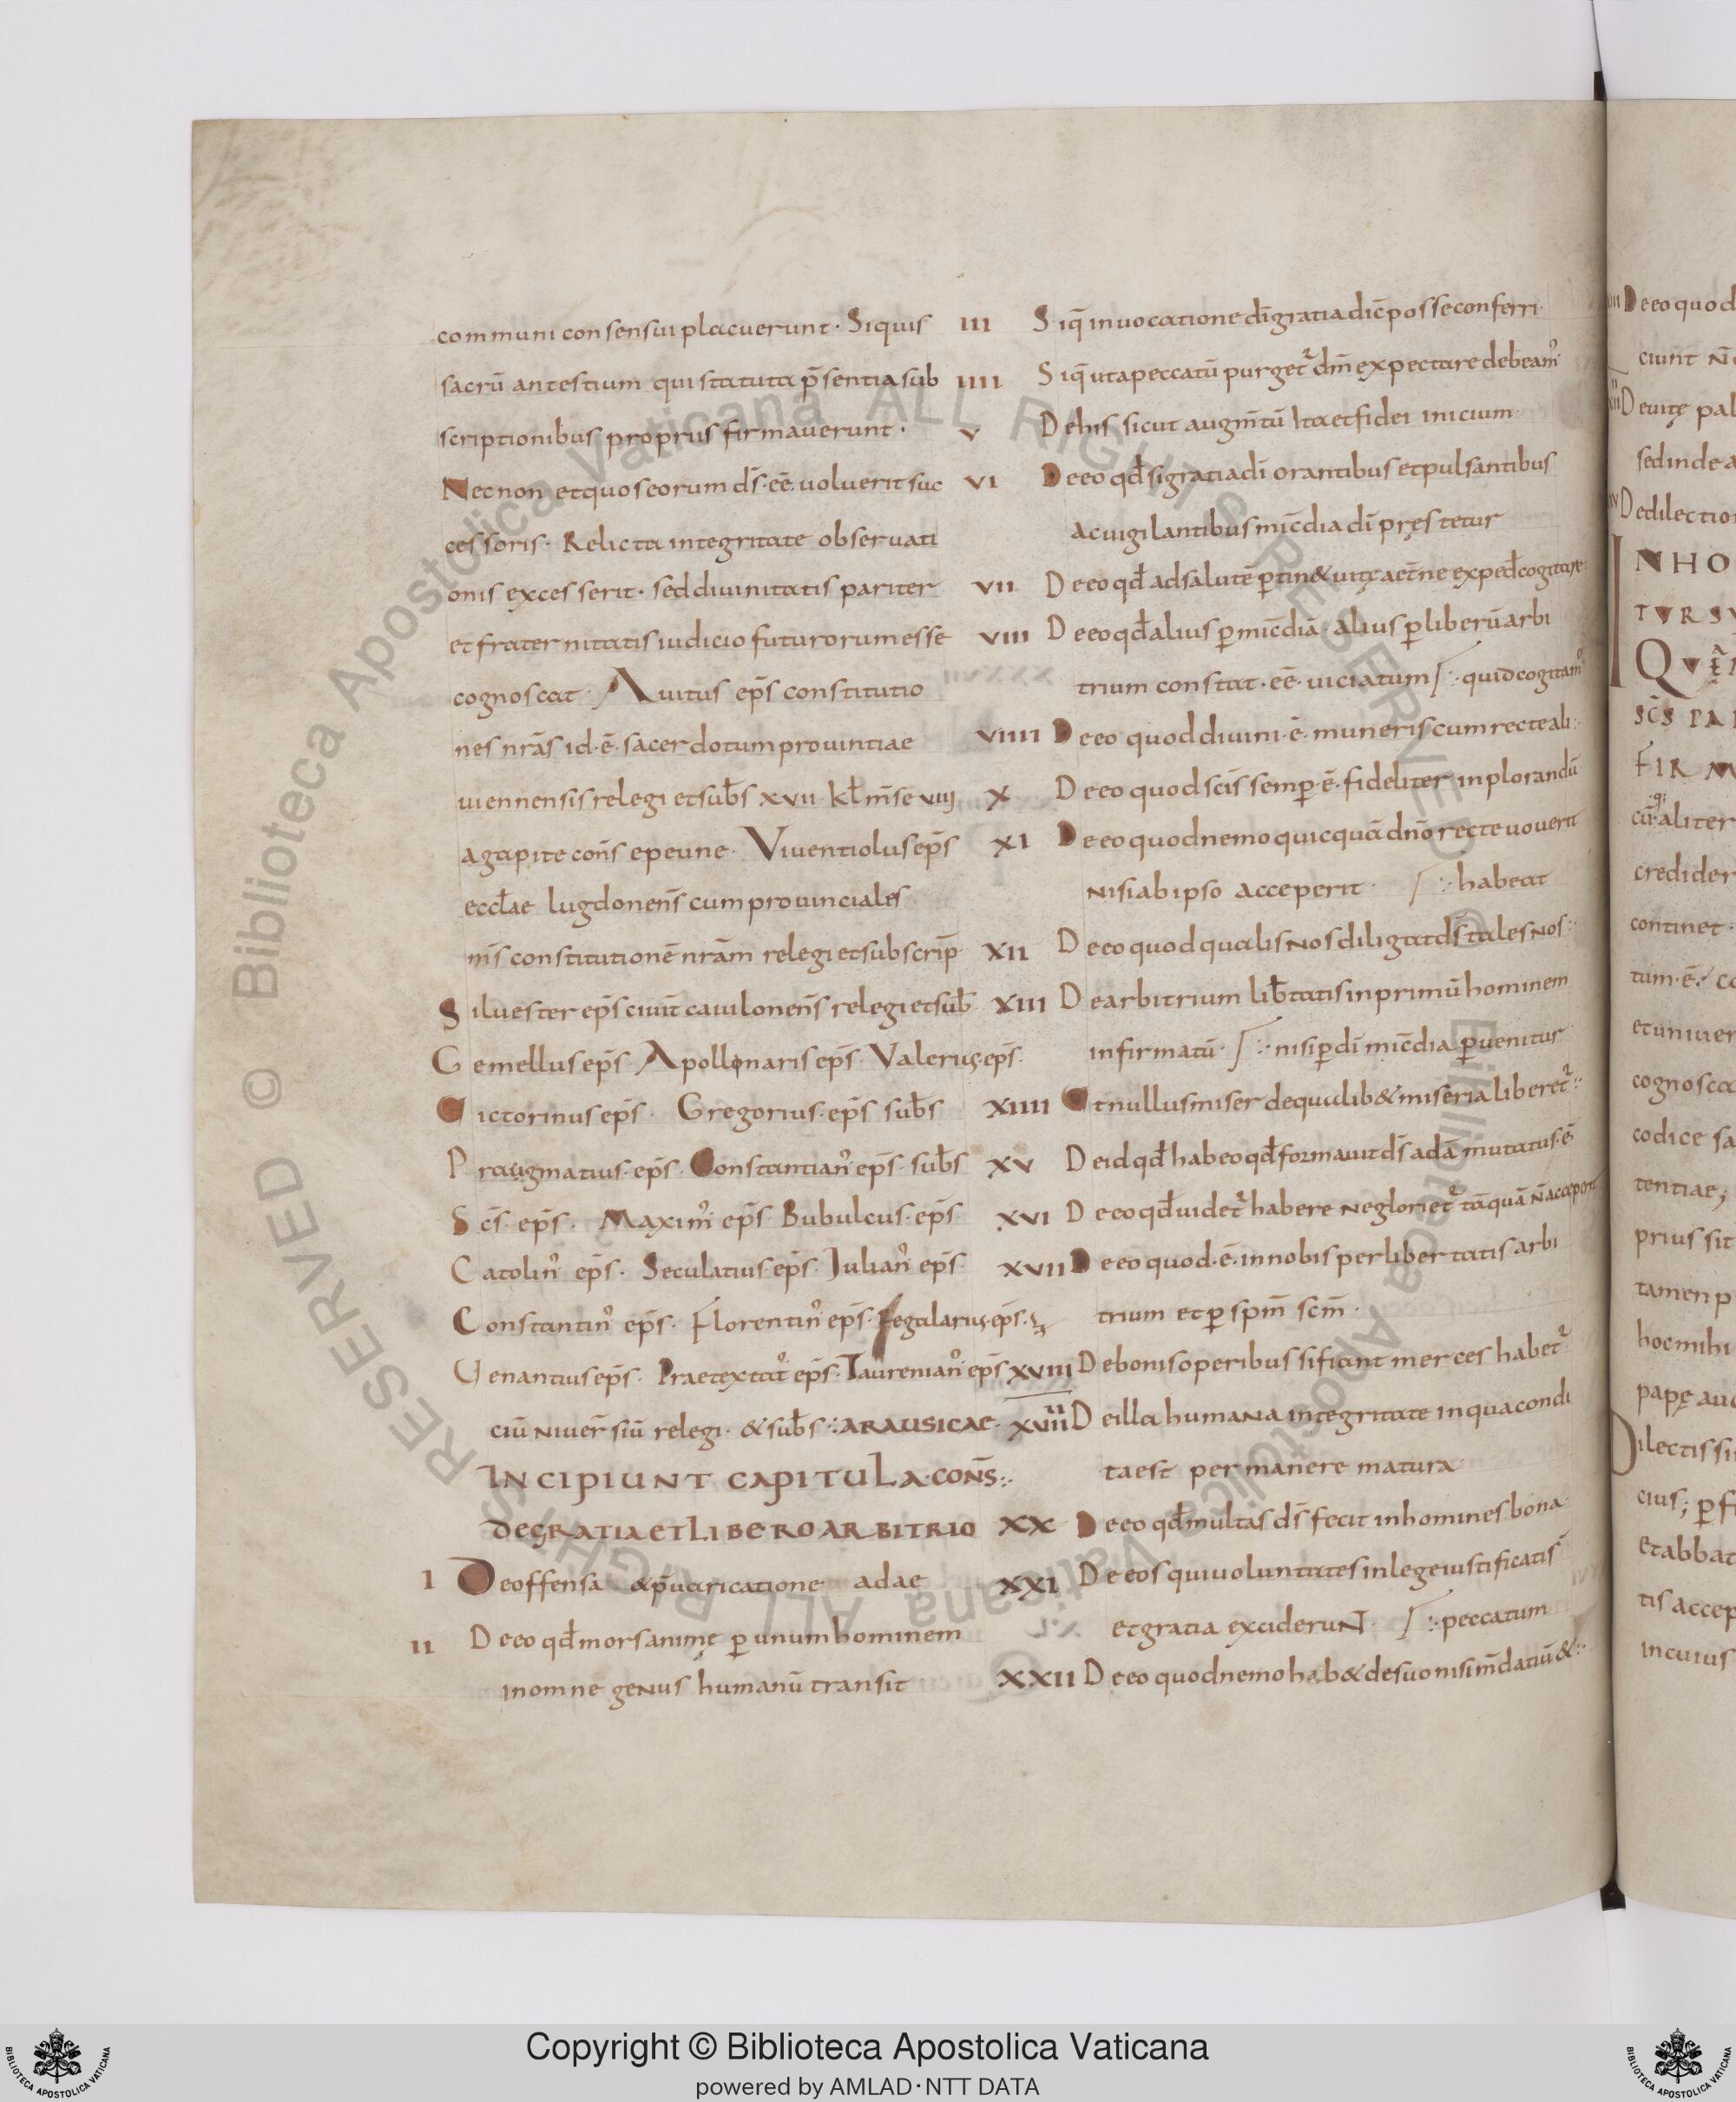 communi consensui placuerunt · Siquis
sacrū antestium qui statuta p̄sentia sub
scriptionibus propriis firmauerunt ·
Necnon etquos eorum d̄s · ēe · uoluerit suc
cessoris · Relicta integritate obseruati
onis excesserit · sed diuinitatis pariter
et fraternitatis iudicio futurorum esse
cognoscat · Auitus ep̄s constitutio
nes nrās id · ē · sacerdotum prouintiae
uiennensis relegi et sub̄s xvii · kl̄ m̄se viiij
agapite cons̄ epeune · Viuentiolus ep̄s
eccl̄ae lugdonens̄ cum prouinciales
nis̄ constitutionē nrām relegi et subscrip̄ ·
Siluester ep̄s ciuit̄ cauilonens̄ relegi et sub̄
Gemellus ep̄s · Apollonaris ep̄s · Valerius · ep̄s ·
Uictorinus ep̄s · Gregorius · ep̄s sub̄s
Praugmatius · ep̄s · Constantian᾿ ep̄s · sub̄s
Sc̄s · ep̄s · Maxim᾿ ep̄s · Bubulcus · ep̄s
Catolin᾿ ep̄s · Seculatius · ep̄s · Iulian᾿ ep̄s ·
Constantin᾿ ep̄s · Florentin᾿ ep̄s · Fegalarius · ep̄s ·
Uenantius ep̄s · Praetextat᾿ ep̄s · Taurenian᾿ ep̄s
ciū niuer̄siū relegi · & sub̄s ⁖ ARAUSICAE ·
INCIPIUNT CAPITULA · CONS̄ ⁖
DE GRATIA ET LIBERO ARBITRIO
I De offensa & p̄uaricatione adae
II De eo qd̄ mors animę p̱ unum hominem
in omne genus humanū transit
III Siq̄ inuocatione dī gratia dic̄ posse conferri ·
IIII Siq̄ ut a peccatū purget᾿ dm̄ expectare debeam᾿
V De his sicut augm̄tū Ita et fidei inicium
VI De eo qd̄ si gratia dī orantibus et pulsantibus
ac uigilantibus mic̄dia dī pręstetur
VII De eo qd̄ ad salutē p̱tin& uitę aet̄ne exped̄ cogitare
VIII De eo qd̄ alius p̱ mic̄diā · alius p̱ liberū arbi
trium constat · ēe · uiciatum ⁖ quid cogitam᾿
VIIII De eo quod diuini · ē · muneris cum recte ali ⁖
X De eo quod scīs semp̱ · ē · fideliter inplorandū
XI De eo quod nemo quicquā dn̄o recte uouerit
nisi ab ipso acceperit · ⁖ habeat
XII De eo quod qualis nos diligat d̄s tales nos ⁖
XIII De arbitrium lib̄tatis in primū hominem
infirmatū · ⁖ nisi p̱ dī mic̄dia p̱uenitur
XIIII Ut nullus miser de qualib& miseria liberet᾿ ⁖
XV De id qd̄ habeo qd̄ formauit d̄s adā mutatus · ē
XVI De eo qd̄ uidet᾿ habere ne gloriet᾿ tāquā n̄
XVII De eo quod · ē · in nobis per libertatis arbi
trium et p̱ sp̄m sc̄m ·
XVIII De bonis operibus si fiant merces habet᾿
XVIIII De illa humana integritate in qua condi
ta est permanere matura
XX De eo qd̄ multas d̄s fecit in homines bona
XXI De eos qui uoluntates in lege iustificatis
et gratia exciderunt · ⁖ peccatum
XXII De eo quod nemo hab& de suo nisi m̄datiū & ⁖
De eo quod
ciunt
De uitę pal
sed inde a
De dilectio
IN HO
TUR SU
sc̄s PA
FIRM
aliter
credider
continet ·
tum · ē
et uniuer
cognosca
codice sa
tentiae;
prius sit
tamen p
hoc mihi
papę auc
Dilectissi
cius; p̱ f
et abbat
tis accep
in cuius
Copyright © Biblioteca Apostolica Vaticana
powered by AMLAD·NTT DATA
BIBLIOTECA APOSTOLICA VATICANA
BIBLIOTECA APOSTOLICA VATICANA
© Biblioteca Apostolica Vaticana ALL RIGHTS RESERVED © Biblioteca Apostolica Vaticana ALL RIGHTS RESERVED